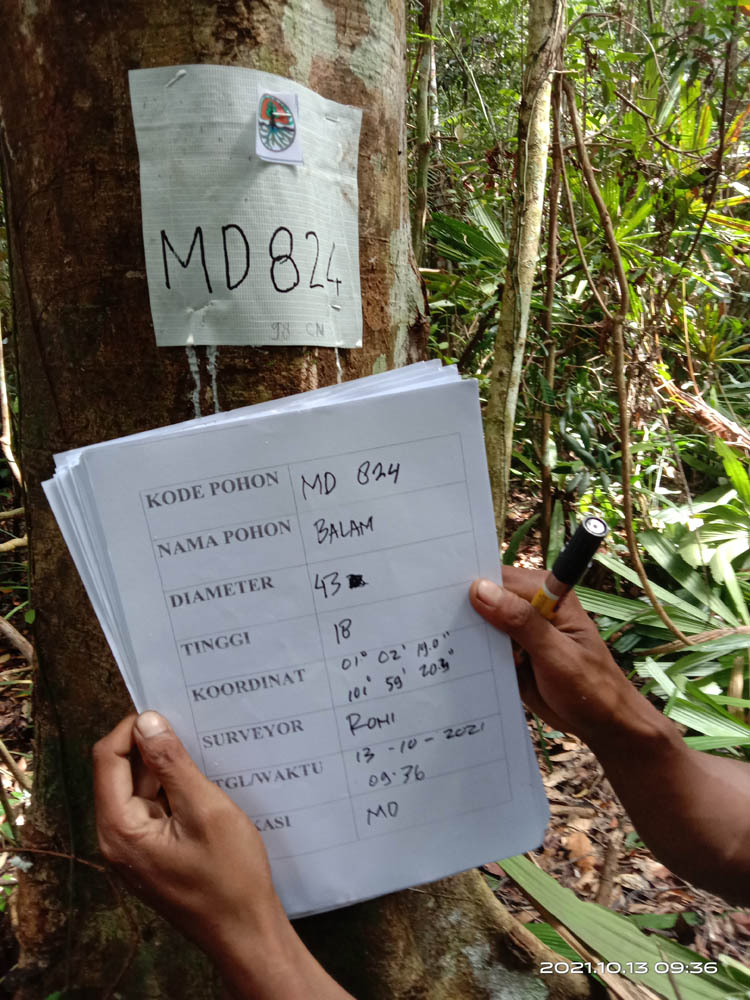 MD 824
98 CN
KODE POHON MD 824
NAMA POHON BALAM
DIAMETER 43
TINGGI 18
KOORDINAT 01° 02' 19.0"
101° 59' 20.3"
SURVEYOR ROMI
TGL/WAKTU 13-10-2021
09.36
KASI MD
2021.10.13 09:36